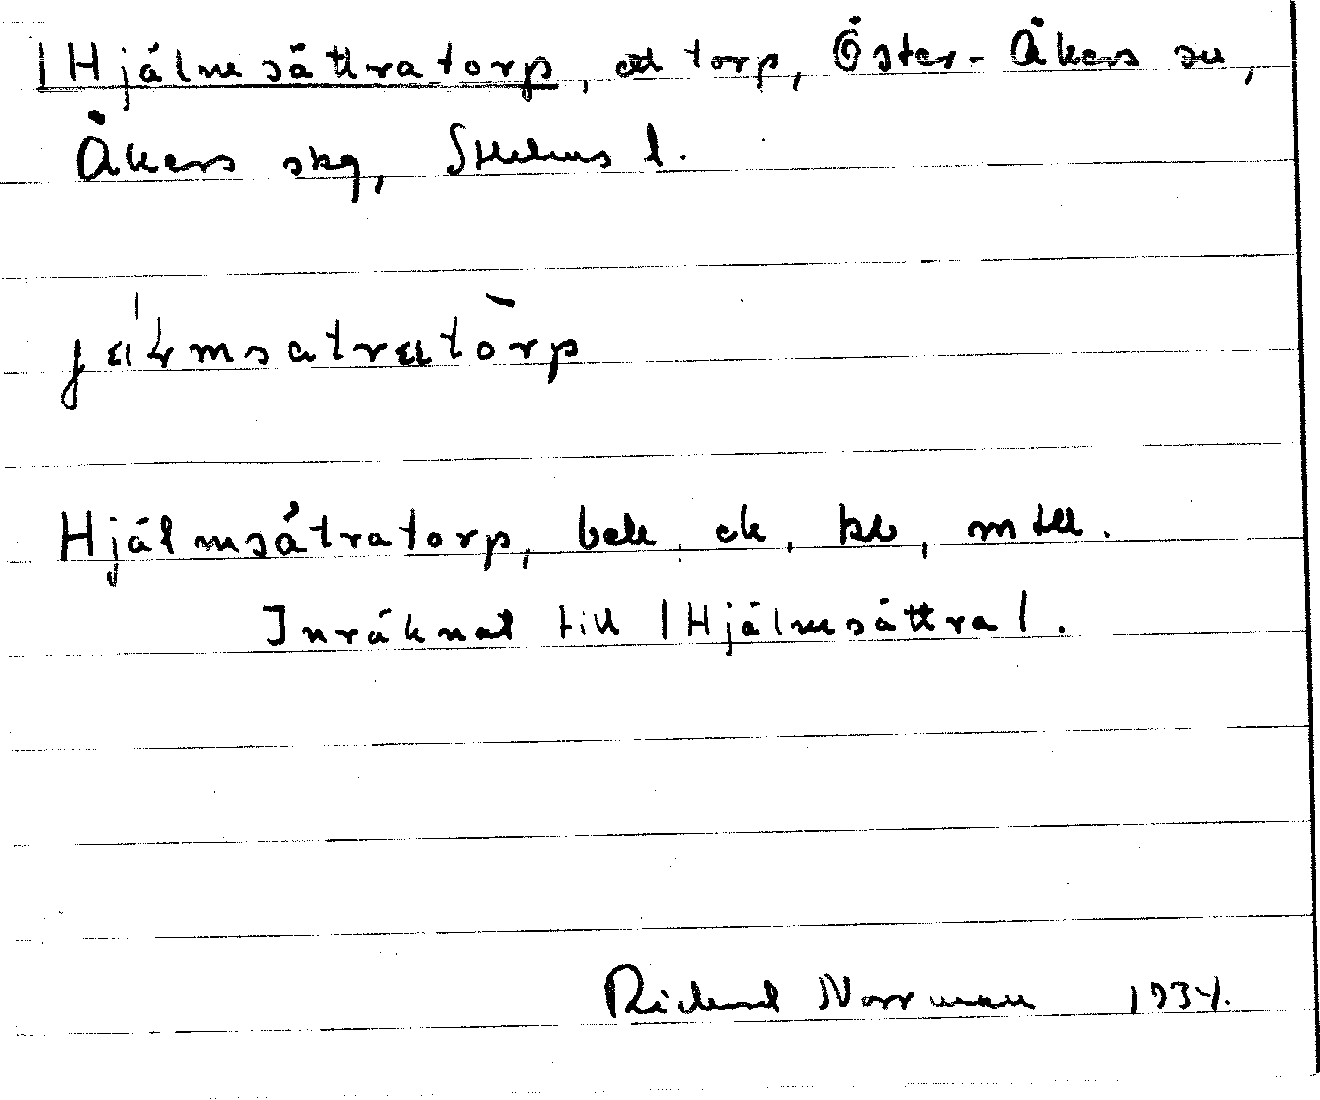 |Hjälmsättratorp, ett torp, Öster-Åkers sn,
Åkers skg, Sthlms l.
Hjälmsätratorp, bek. ek.
Inräknat till |Hjälmsättra|.
Richard Norrman 1934.